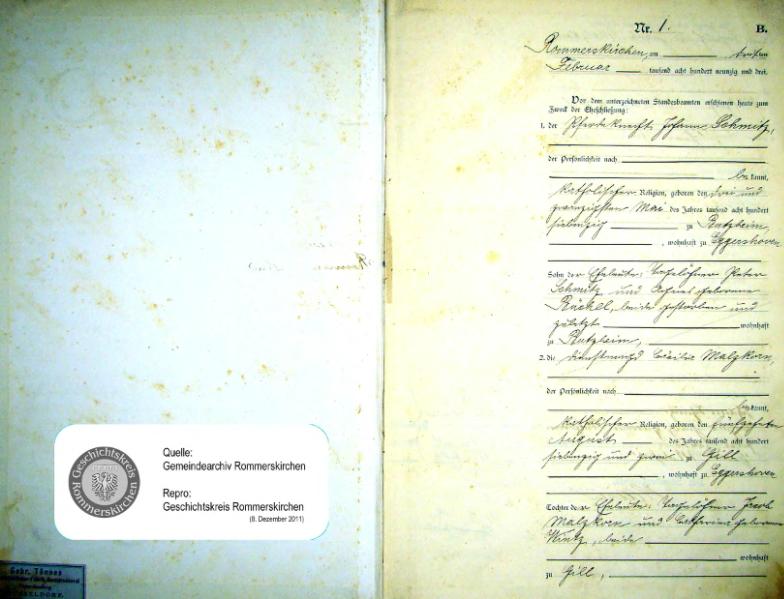 Geschichtskreis
Rommerskirchen
Quelle:
Gemeindearchiv Rommerskirchen
Repro:
Geschichtskreis Rommerskirchen
(8. Dezember 2011)
Gebr. Tönnes
Nr. 1. B.
Rommerskirchen, am dritten
Februar tausend acht hundert neunzig und drei.
Vor dem unterzeichneten Standesbeamten erschienen heute zum
Zweck der Eheschließung:
1. der Pferdeknecht Johann Schmitz,
der Persönlichkeit nach
be kannt,
katholischer Religion, geboren den drei und
zwanzigsten Mai des Jahres tausend acht hundert
siebenzig zu Butzheim,
, wohnhaft zu Eggershoven
Sohn der Eheleute: Tagelöhner Peter
Schmitz und Agnes geborene
beide gestorben und
zuletzt wohnhaft
zu Butzheim,
2. die Dienstmagd Cäcilia Malzkorn,
der Persönlichkeit nach
be kannt,
katholischer Religion, geboren den fünfzehnten
August des Jahres tausend acht hundert
siebenzig und zwei zu Gill
, wohnhaft zu Eggershoven
Tochter der Eheleute: Tagelöhner Jacob
Malzkorn und Catharina geborene
beide
wohnhaft
zu Gill,